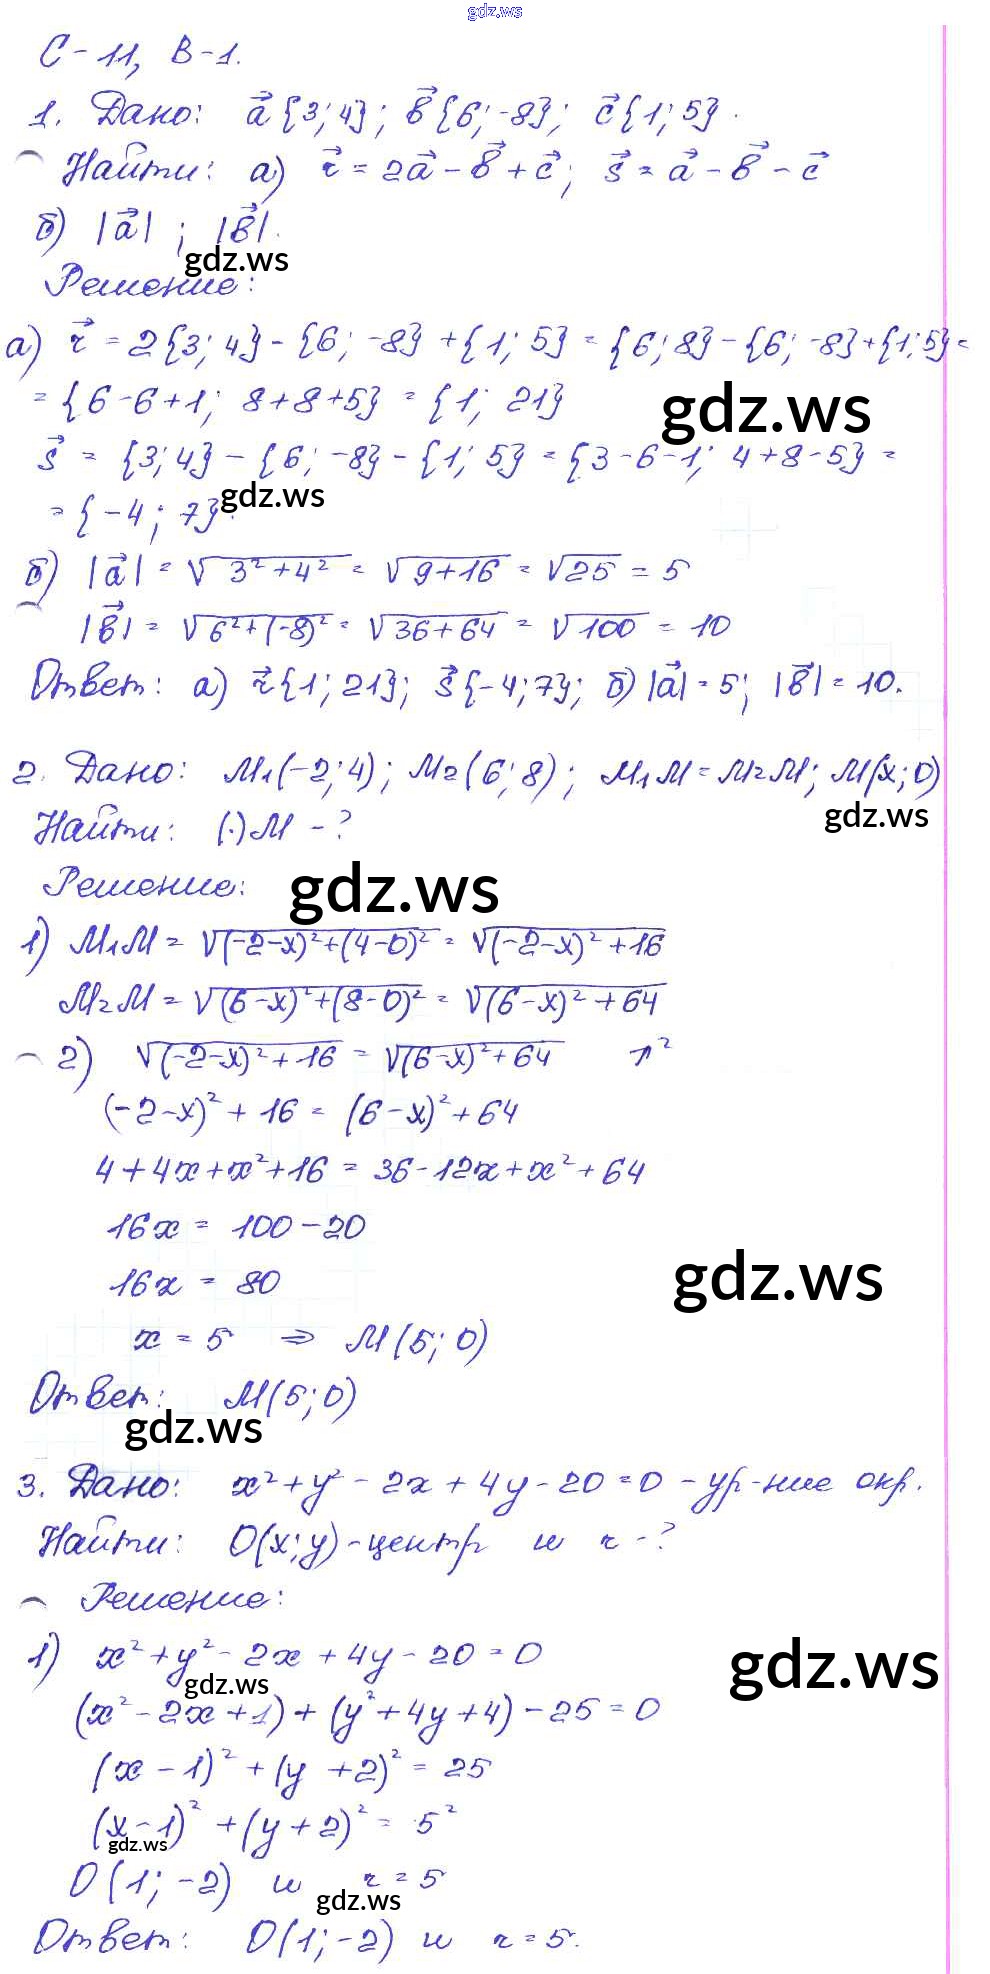 gdz.ws
С-11, В-1.
1. Дано: a⃗{3; 4}; b⃗{6; -8}; c⃗{1; 5}.
Найти: а) r⃗ = 2a⃗ - b⃗ + c⃗; s⃗ = a⃗ - b⃗ - c⃗
б) |a⃗|; |b⃗|.
gdz.ws
Решение:
а) r⃗ = 2{3; 4} - {6; -8} + {1; 5} = {6; 8} - {6; -8} + {1; 5} =
= {6-6+1; 8+8+5} = {1; 21}
gdz.ws
s⃗ = {3; 4} - {6; -8} - {1; 5} = {3-6-1; 4+8-5} =
gdz.ws
= {-4; 7}.
б) |a⃗| = √(3²+4²) = √(9+16) = √25 = 5
|b⃗| = √(6²+(-8)²) = √(36+64) = √100 = 10
Ответ: а) r⃗{1; 21}; s⃗{-4; 7}; б) |a⃗| = 5; |b⃗| = 10.
2. Дано: M₁(-2; 4); M₂(6; 8); M₁M = M₂M; M(x; 0)
gdz.ws
Найти: (·)M - ?
Решение:
gdz.ws
1) M₁M = √((-2-x)²+(4-0)²) = √((-2-x)²+16)
M₂M = √((6-x)²+(8-0)²) = √((6-x)²+64)
2) √((-2-x)²+16) = √((6-x)²+64) ↗²
(-2-x)² + 16 = (6-x)² + 64
4+4x+x²+16 = 36-12x+x²+64
16x = 100-20
16x = 80
gdz.ws
x = 5 ⇒ M(5; 0)
Ответ: M(5; 0)
gdz.ws
3. Дано: x²+y²-2x+4y-20=0 - ур-ние окр.
Найти: O(x; y)-центр и r-?
Решение:
1) x²+y²-2x+4y-20=0
gdz.ws
gdz.ws
(x²-2x+1)+(y²+4y+4)-25=0
(x-1)²+(y+2)²=25
(x-1)²+(y+2)²=5²
gdz.ws
O(1; -2) и r=5
gdz.ws
Ответ: O(1; -2) и r=5.